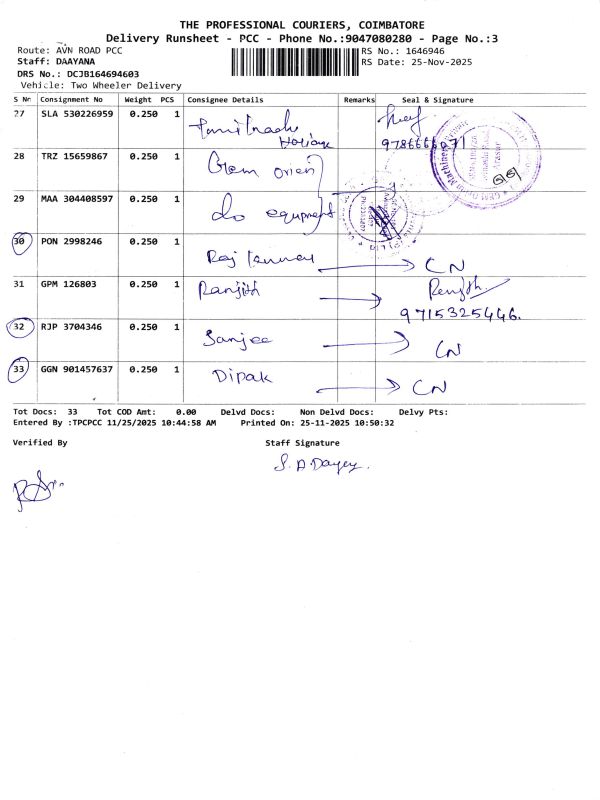 THE PROFESSIONAL COURIERS, COIMBATORE
Delivery Runsheet - PCC - Phone No.:9047080280 - Page No.:3
Route: AVN ROAD PCC RS No.: 1646946
Staff: DAAYANA RS Date: 25-Nov-2025
DRS No.: DCJB164694603
Vehicle: Two Wheeler Delivery
S No Consignment No Weight PCS Consignee Details Remarks Seal & Signature
27 SLA 530226959 0.250 1
28 TRZ 15659867 0.250 1 Gem
29 MAA 304408597 0.250 1 do equpment
30 PON 2998246 0.250 1 Raj CN
31 GPM 126803 0.250 1 Ranjith
9715325446.
32 RJP 3704346 0.250 1 Sanjee CN
33 GGN 901457637 0.250 1 Dipak CN
Tot Docs: 33 Tot COD Amt: 0.00 Delvd Docs: Non Delvd Docs: Delvy Pts:
Entered By :TPCPCC 11/25/2025 10:44:58 AM Printed On: 25-11-2025 10:50:32
Verified By Staff Signature